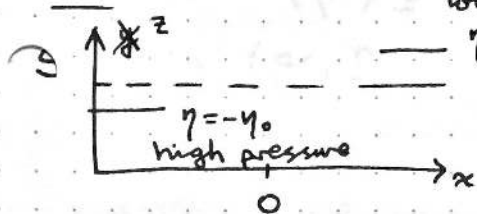 z
η = -η₀
high pressure
x
0